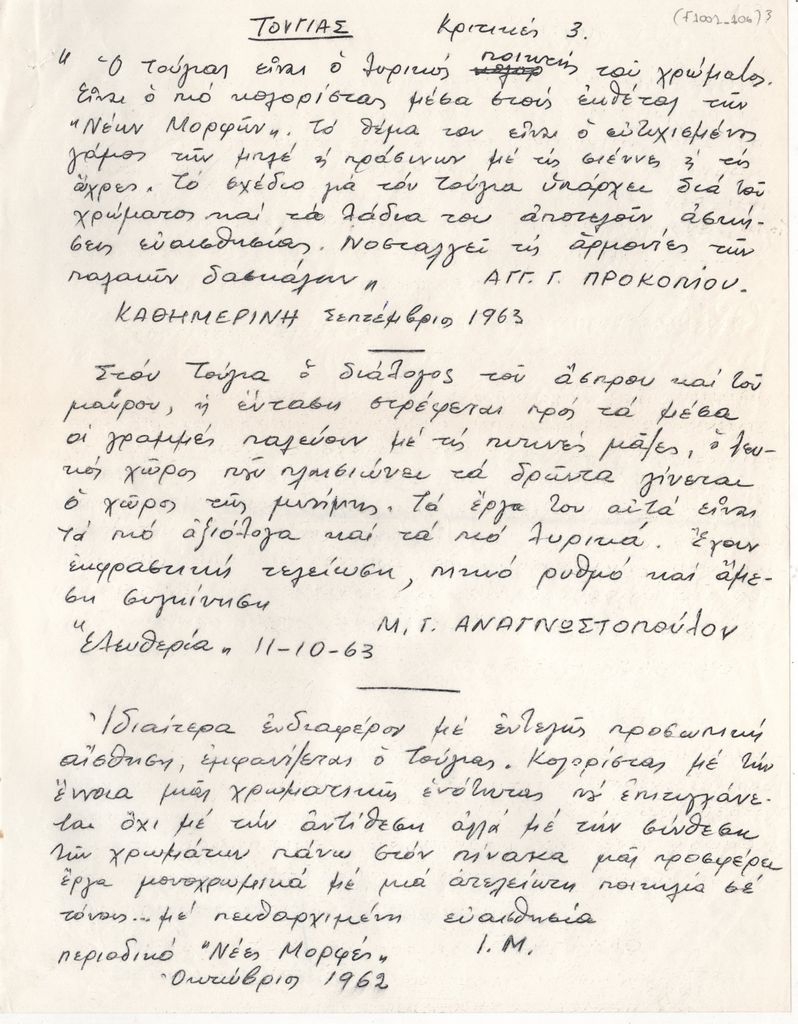 ΤΟΥΓΙΑΣ Κριτικές 3. (F1001_106)3
"Ὁ Τούγιας εἶναι ὁ λυρικός ποιητής τοῦ χρώματος.
Εἶναι ὁ πιό κολορίστας μέσα στούς ἐκθέτας τῶν
"Νέων Μορφῶν". Τό θέμα του εἶναι ὁ εὐτυχισμένος
γάμος τῶν μπλέ ἤ πράσινων μέ τίς σιέννες ἤ τίς
ὤχρες. Τό σχέδιο γιά τόν Τούγια ὑπάρχει διά τοῦ
χρώματος καί τά λάδια του ἀποτελοῦν ἀσκή-
σεις εὐαισθησίας. Νοσταλγεῖ τίς ἁρμονίες τῶν
παλαιῶν δασκάλων" ΑΓΓ. Γ. ΠΡΟΚΟΠΙΟΥ.
ΚΑΘΗΜΕΡΙΝΗ Σεπτέμβριος 1963
Στόν Τούγια ὁ διάλογος τοῦ ἄσπρου καί τοῦ
μαύρου, ἡ ἔνταση στρέφεται πρός τά μέσα
οἱ γραμμές παλεύουν μέ τίς πυκνές μᾶζες, ὁ λευ-
κός χῶρος πού πλαισιώνει τά δρῶντα γίνεται
ὁ χῶρος τῆς μνήμης. Τά ἔργα του αὐτά εἶναι
τά πιό ἀξιόλογα καί τά πιό λυρικά. Ἔχουν
ἐκφραστική τελείωση, πυκνό ρυθμό καί ἄμε-
ση συγκίνηση
Μ. Γ. ΑΝΑΓΝΩΣΤΟΠΟύλου
"Ἐλευθερία" 11-10-63
Ἰδιαίτερα ἐνδιαφέρον μέ ἐντελῶς προσωπική
αἴσθηση, ἐμφανίζεται ὁ Τούγιας. Κολορίστας μέ τήν
ἔννοια μιᾶς χρωματικῆς ἑνότητας πού ἐπιτυγχάνε-
ται ὄχι μέ τήν ἀντίθεση ἀλλά μέ τήν σύνθεση
τῶν χρωμάτων πάνω στόν πίνακα μᾶς προσφέρει
ἔργα μονοχρωμικά μέ μιά ἀτελείωτη ποικιλία σέ
τόνους... μέ πειθαρχιμένη εὐαισθησία
περιοδικό "Νέες Μορφές" Ι. Μ.
Ὀκτώβριος 1962